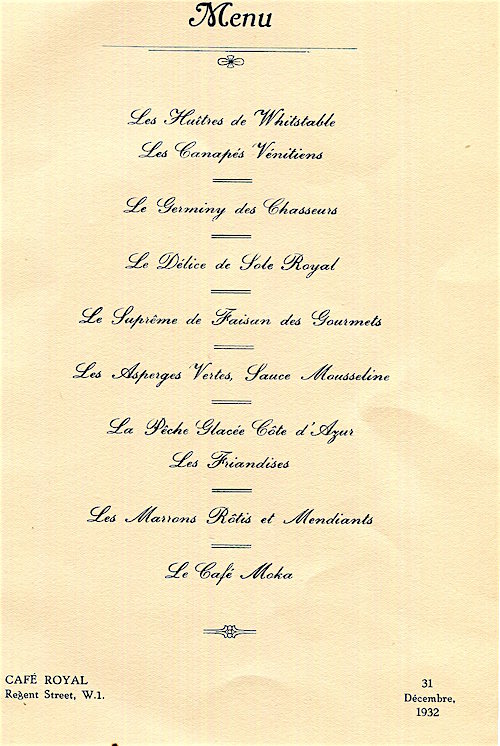 Menu
Les Huîtres de Whitstable
Les Canapés Vénitiens
Le Germiny des Chasseurs
Le Délice de Sole Royal
Le Suprême de Faisan des Gourmets
Les Asperges Vertes, Sauce Mousseline
La Pêche Glacée Côte d'Azur
Les Friandises
Les Marrons Rôtis et Mendiants
Le Café Moka
CAFÉ ROYAL
Regent Street, W.1.
31
Décembre,
1932